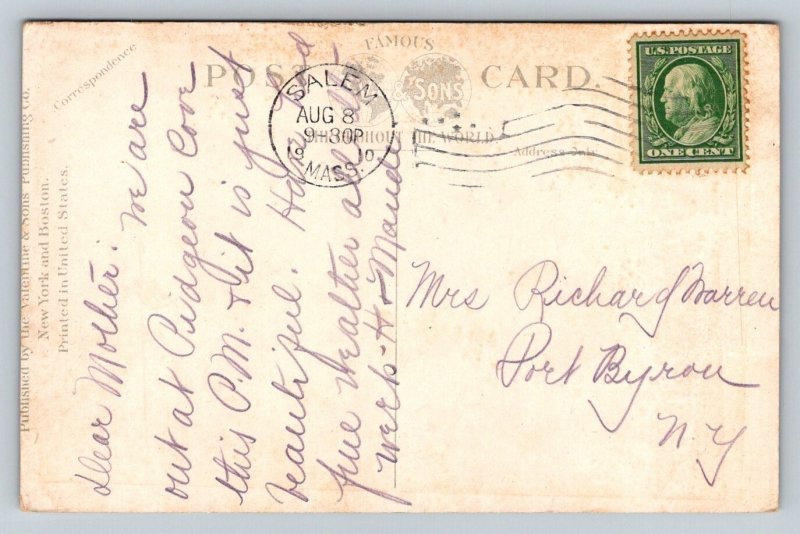 Published by the Valentine & Sons Publishing Co.
New York and Boston.
Printed in United States.
Correspondence
FAMOUS
POST CARD.
& SONS
THROUGHOUT THE WORLD.
Address Only
SALEM
AUG 8
9-30P
19 10
MASS.
U.S. POSTAGE
ONE CENT
Dear Mother: We are
out at Pidgeon Cove
this P.M. & it is just
beautiful. Have had
fine weather all
week - H & Maude
Mrs Richard Warren
Port Byron
N Y